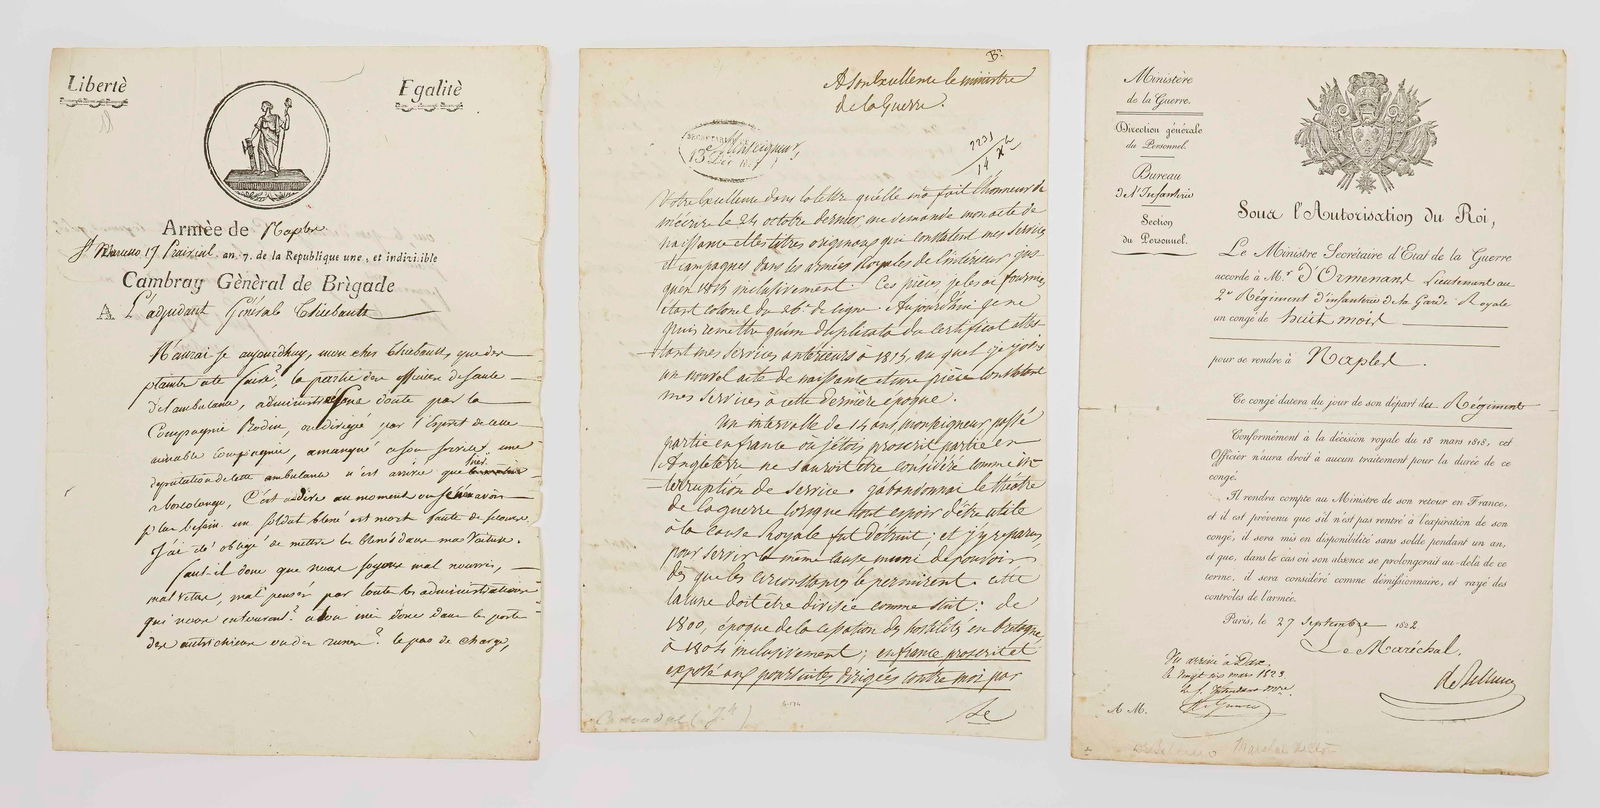 Libertè
Egalitè
Armèe de Naples
17 Prairial an 7. de la Republique une, et indivisible
Cambray Gènèral de Brigade
A L'adjudant Général Thiebault
N'aurai je aujourdhuy, mon cher Thiebault, que des
plaintes a te faire? la partie des officiers de santé
de l'ambulance, par la
Compagnie ou dirigée par l'Esprit de cette
aimable Compagnie, a manqué a son service, une
deputation de cette ambulance n'est arrivée que hier
C'est a dire au moment ou je n'en avois
plus besoin. un soldat blessé est mort faute de secours.
J'ai été obligé de mettre les blessés dans ma voiture.
faut-il donc que nous soyons mal nourris,
mal vetus, mal pensés par toutes les administrations
qui nous entourent? donc dans le
des autrichiens ou des russes? le pas de charge,
B.
A Son Excellence le ministre
de la Guerre.
Monseigneur,
13 Déc
2231
14 Xbre
Votre Excellence dans la lettre qu'elle m'a fait l'honneur de
m'écrire le 24 octobre dernier me demande mon acte de
naissance et les titres originaux qui constatent mes services
et campagnes dans les armées Royales de l'intérieur jus
qu'en 1815 inclusivement. Ces pièces je les ai fournies
étant colonel du 26e de ligne. Aujourd'hui je ne
puis remettre qu'un duplicata du certificat attes-
tant mes services antérieurs à 1815, au quel je joins
un nouvel acte de naissance et une pièce constatant
mes services à cette dernière époque.
Un intervalle de 14 ans, monseigneur, passé
partie en france où j'étois proscrit partie en
Angleterre ne sauroit être considéré comme in-
terruption de service. j'abandonnai le théâtre
de la guerre lorsque tout espoir d'être utile
à la cause Royale fut détruit; et j'y reparus,
pour servir la même cause muni de pouvoirs
dès que les circonstances le permirent. cette
lacune doit être divisée comme suit: de
1800, époque de la cessation des hostilités en Bretagne,
à 1804 inclusivement; en france proscrit et
exposé aux poursuites dirigées contre moi par
le
Ministère
de la Guerre.
Direction générale
du Personnel.
Bureau
de l'Infanterie
Section
du Personnel.
Sous l'Autorisation du Roi,
Le Ministre Secrétaire d'État de la Guerre
accorde à M.r d'Ormenans Lieutenant au
2e Régiment d'infanterie de la Garde Royale
un congé de huit mois
pour se rendre à Naples.
Ce congé datera du jour de son départ du Régiment
Conformément à la décision royale du 18 mars 1818, cet
Officier n'aura droit à aucun traitement pour la durée de ce
congé.
Il rendra compte au Ministre de son retour en France,
et il est prévenu que s'il n'est pas rentré à l'expiration de son
congé, il sera mis en disponibilité sans solde pendant un an,
et que, dans le cas où son absence se prolongerait au-delà de ce
terme, il sera considéré comme démissionnaire, et rayé des
contrôles de l'armée.
Paris, le 27 Septembre 1822
Le Maréchal,
de Bellune
Vu arrivé à Dax
le vingt six mars 1823.
A M.